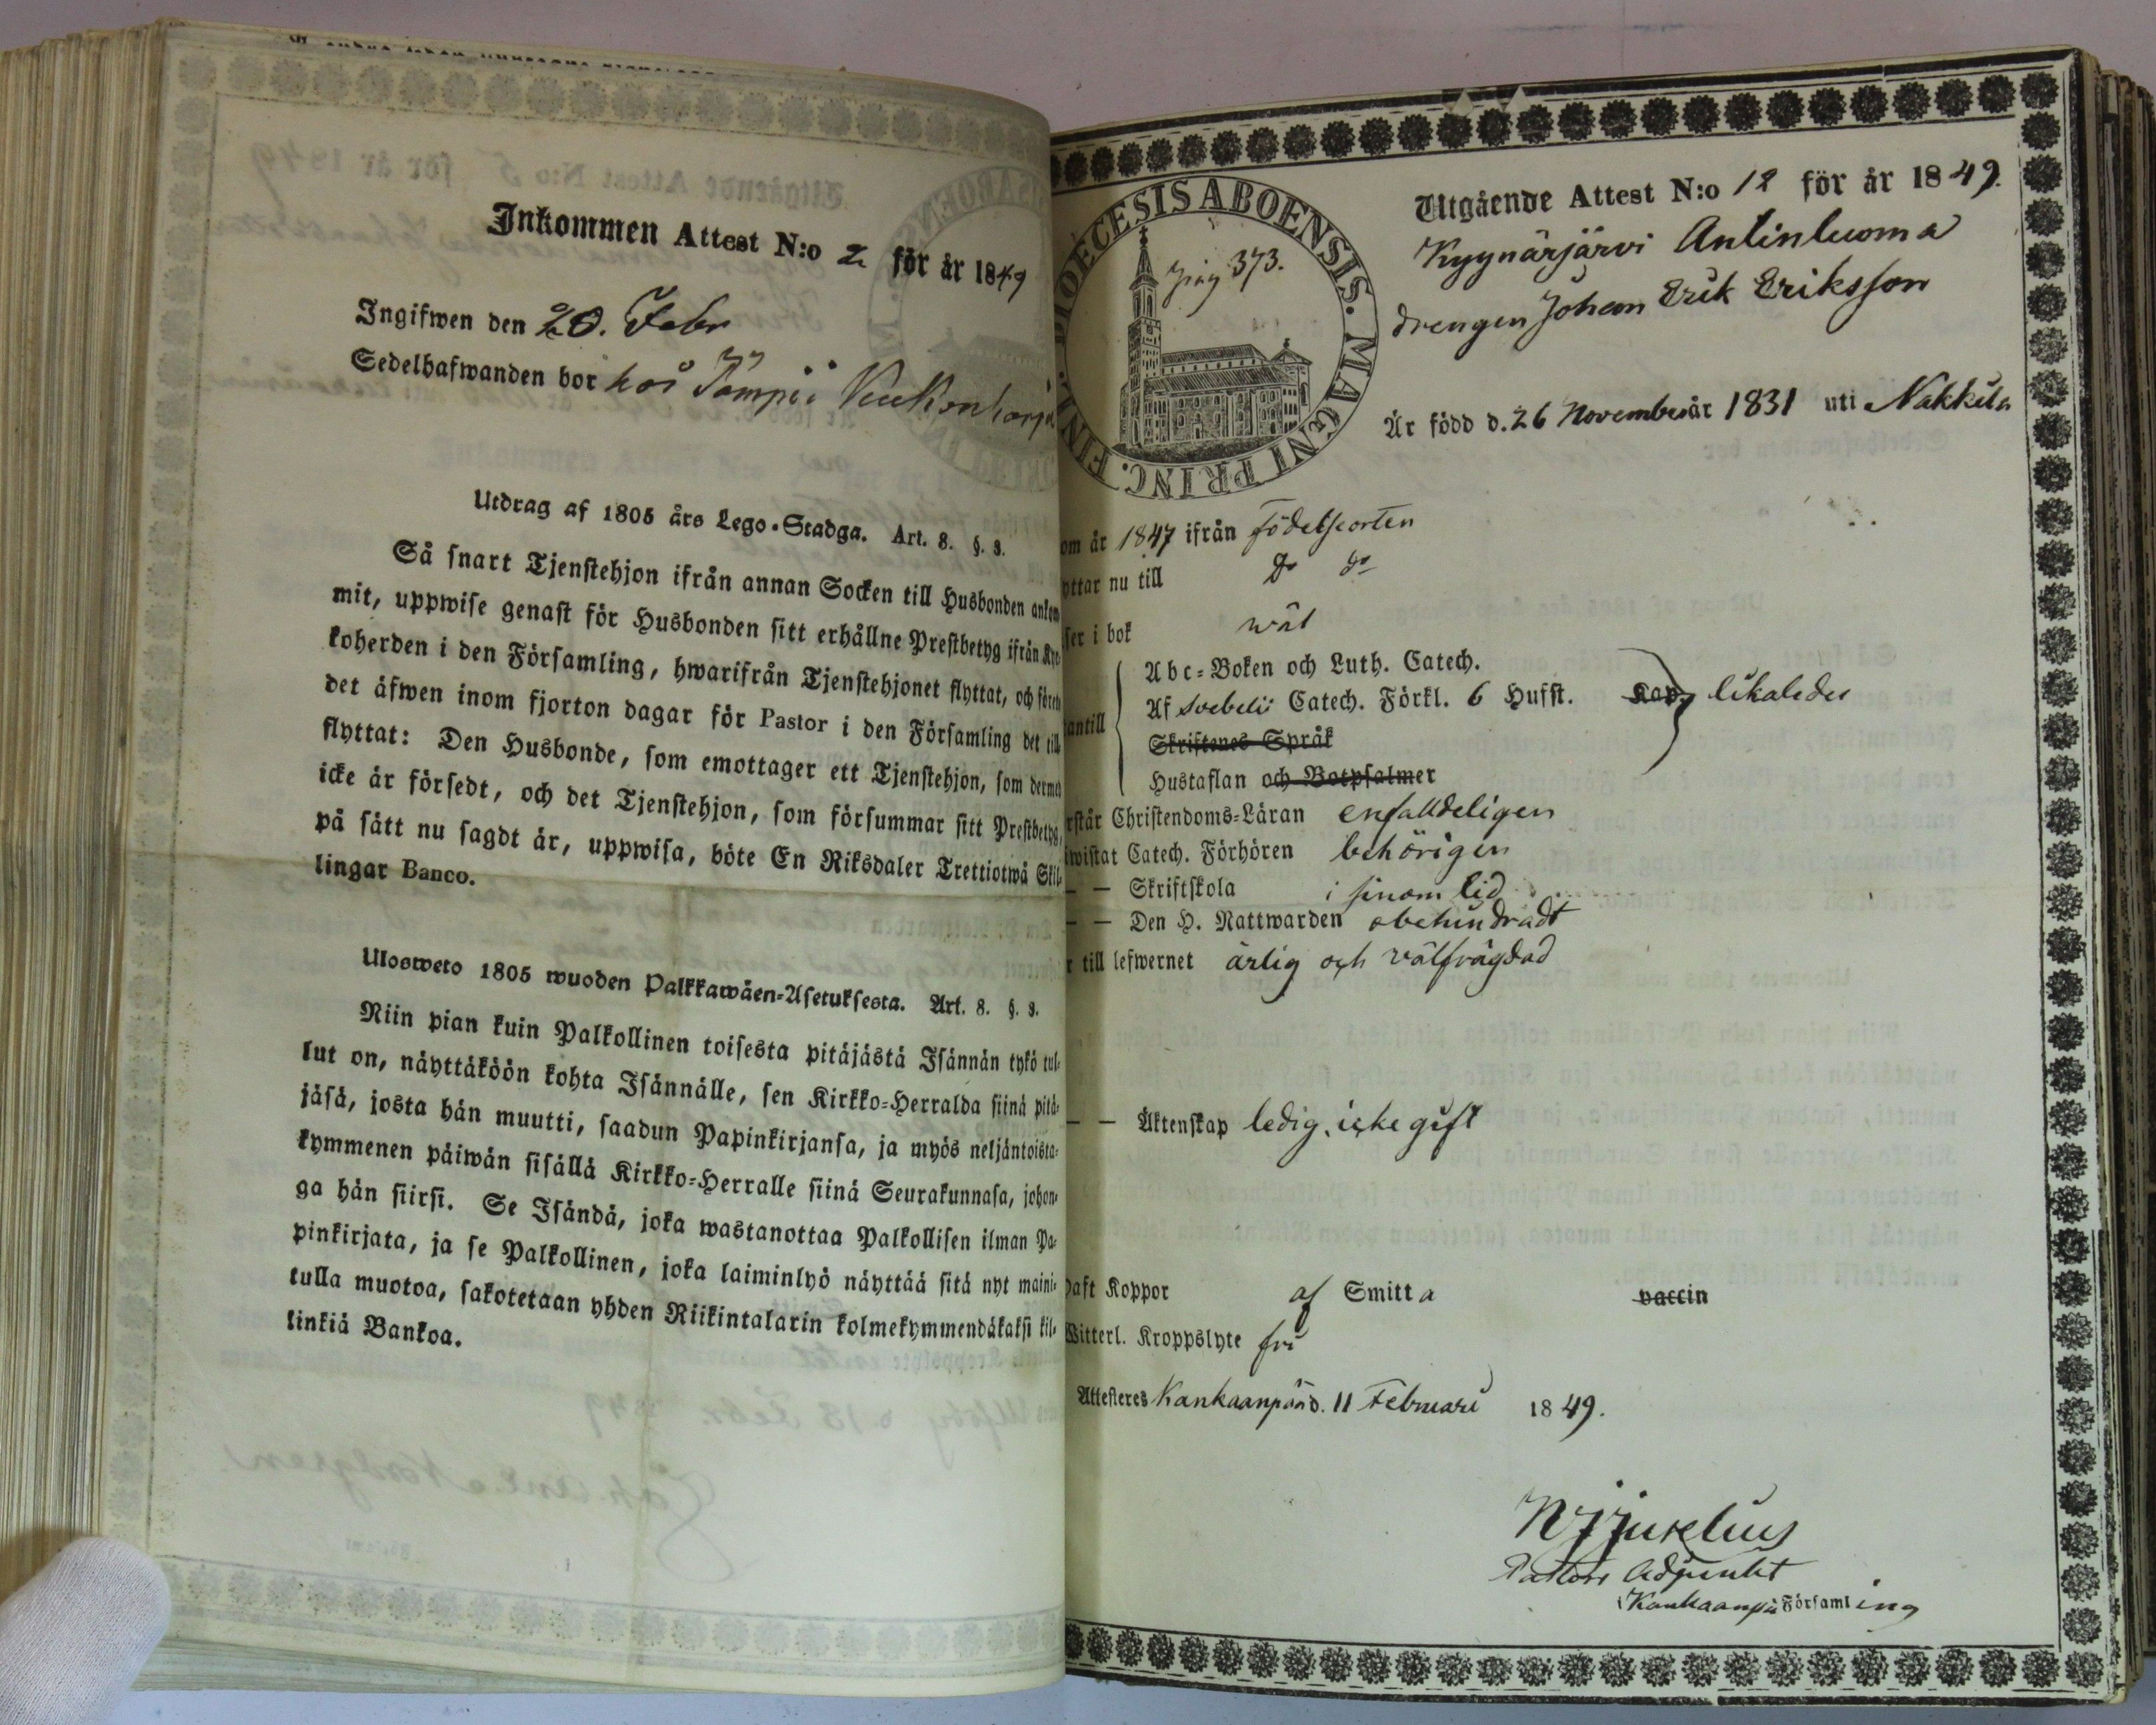 Inkommen Attest N:o 2 för år 1849
Ingifwen den 20. Febr
Sedelhafwanden bor hos Tömpii
Utdrag af 1805 års Lego-Stadga. Art. 8. §. 3.
Så snart Tjenstehjon ifrån annan Socken till Husbonden ankom
mit, uppwise genast för Husbonden sitt erhållne Prestbetyg ifrån Kyr
koherden i den Församling, hwarifrån Tjenstehjonet flyttat, och förete
det äfwen inom fjorton dagar för Pastor i den Församling det till
flyttat: Den Husbonde, som emottager ett Tjenstehjon, som dermed
icke är försedt, och det Tjenstehjon, som försummar sitt Prestbetyg,
på sätt nu sagdt är, uppwisa, böte En Riksdaler Trettiotwå Skil-
lingar Banco.
Ulosweto 1805 wuoden Palkkawäen-Asetuksesta. Art. 8. §. 3.
Niin pian kuin Palkollinen toisesta pitäjästä Isännän tykö tul-
lut on, näyttäköön kohta Isännälle, sen Kirkko-Herralda siinä pitä-
jäsä, josta hän muutti, saadun Papinkirjansa, ja myös neljäntoista-
kymmenen päiwän sisällä Kirkko-Herralle siinä Seurakunnasa, johon-
ga hän siirsi. Se Isändä, joka wastanottaa Palkollisen ilman Pa-
pinkirjata, ja se Palkollinen, joka laiminlyö näyttää sitä nyt maini-
tulla muotoa, sakotetaan yhden Riikintalarin kolmekymmendäkaksi kil-
linkiä Bankoa.
DIOECESIS ABOENSIS. MAGNI PRINC. FINL.
373.
Utgående Attest N:o 12 för år 1849.
Kyynärjärvi Antinluoma
drengen Johan Erik Eriksson
Är född d. 26 November år 1831 uti Nakkila
om år 1847 ifrån födelseorten
yttar nu till do do
ser i bok wäl
antill
Abc-Boken och Luth. Catech.
Af Svebelii Catech. Förkl. 6 Hufst. Kap. likaledes
Skriftenes Språk
Hustaflan och Botpsalmer
rstår Christendoms-Läran enfalldeligen
iwistat Catech. Förhören behörigen
— — Skriftskola i sinom tid
— — Den H. Nattwarden obehindradt
r till lefwernet ärlig och välfrägdad
— — Äktenskap ledig, icke gift
haft Koppor af Smitta vaccin
Witterl. Kroppslyte fri
Attesteres Kankaanpää d. 11 Februari 1849.
Pastors Adjunkt
i Kankaanpä Församling